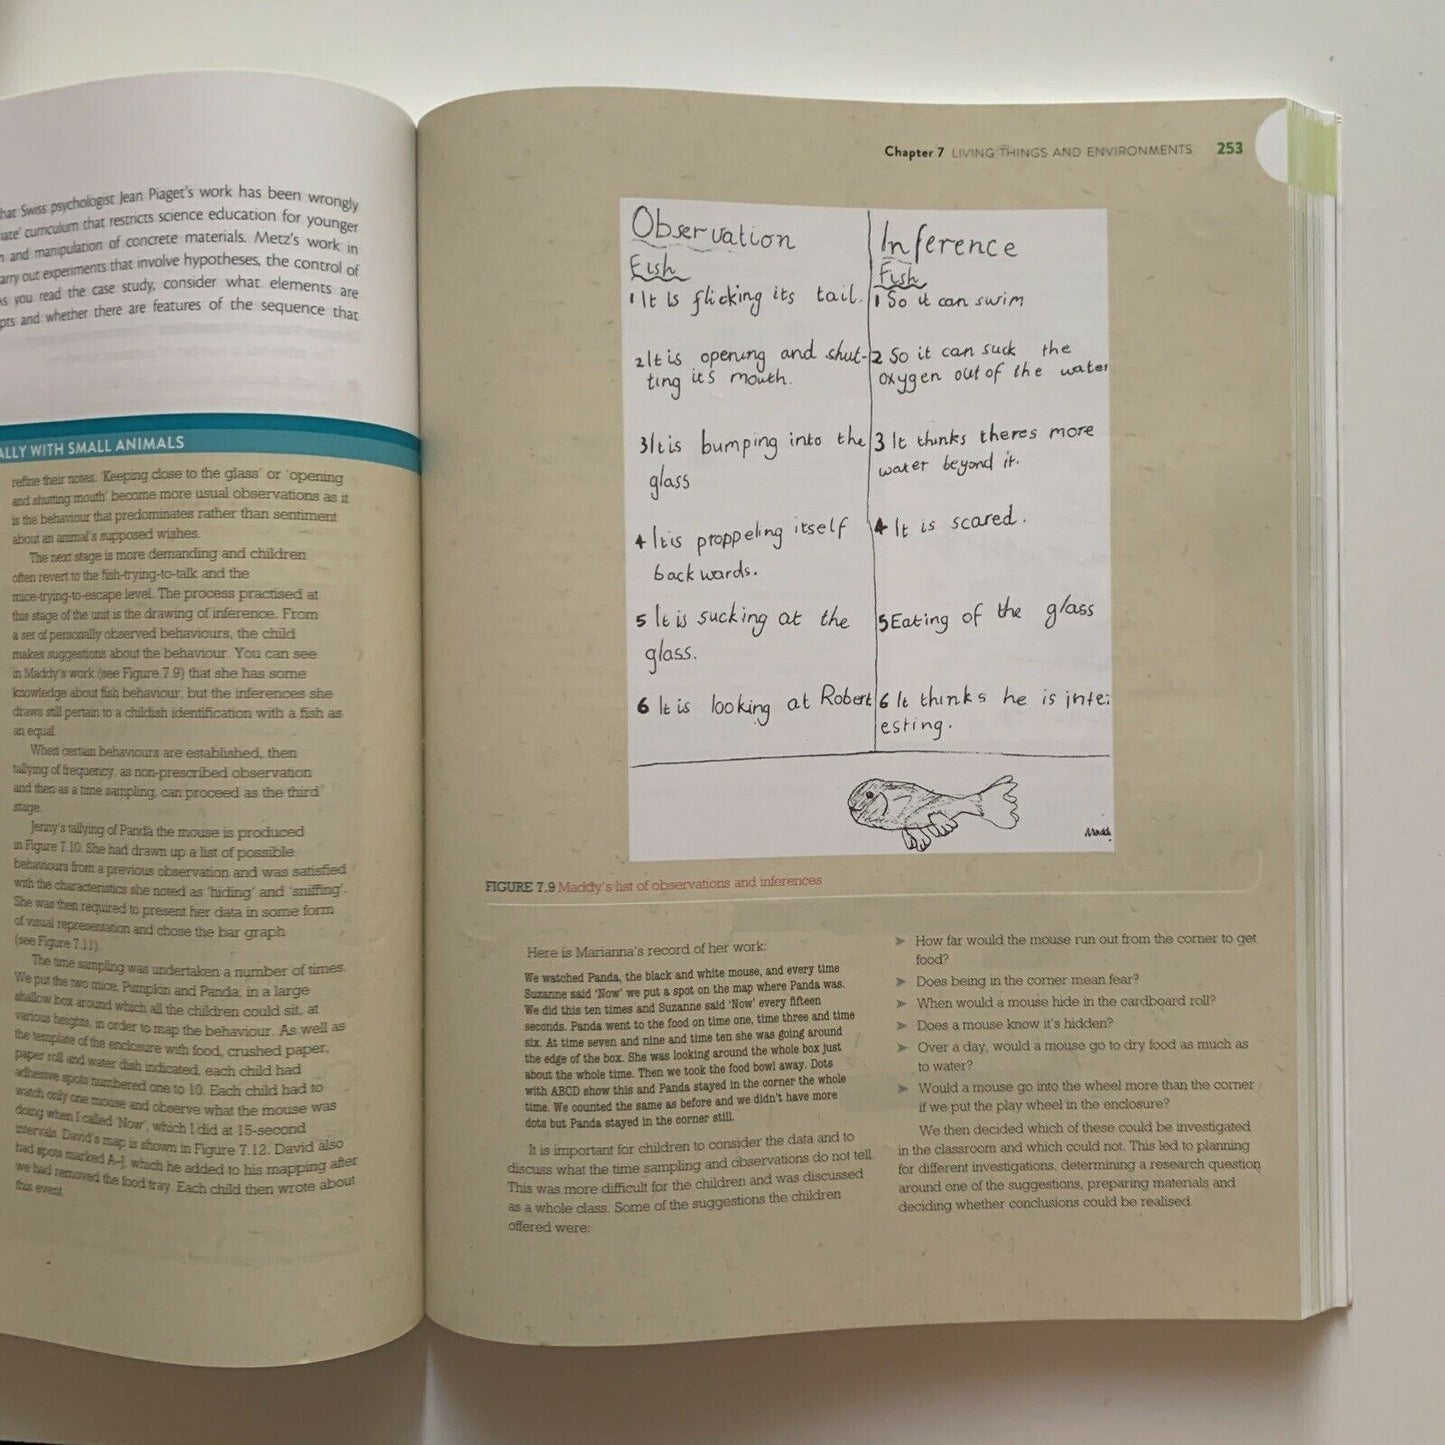 hat Swiss psychologist Jean Piaget's work has been wrongly
iate' curriculum that restricts science education for younger
n and manipulation of concrete materials. Metz's work in
arry out experiments that involve hypotheses, the control of
As you read the case study, consider what elements are
pts and whether there are features of the sequence that
ALLY WITH SMALL ANIMALS
refine their notes. 'Keeping close to the glass' or 'opening
and shutting mouth' become more usual observations as it
is the behaviour that predominates rather than sentiment
about an animal's supposed wishes.
The next stage is more demanding and children
often revert to the fish-trying-to-talk and the
mice-trying-to-escape level. The process practised at
this stage of the unit is the drawing of inference. From
a set of personally observed behaviours, the child
makes suggestions about the behaviour. You can see
in Maddy's work (see Figure 7.9) that she has some
knowledge about fish behaviour, but the inferences she
draws still pertain to a childish identification with a fish as
an equal.
When certain behaviours are established, then
tallying of frequency, as non-prescribed observation
and then as a time sampling, can proceed as the third
stage.
Jenny's tallying of Panda the mouse is produced
in Figure 7.10. She had drawn up a list of possible
behaviours from a previous observation and was satisfied
with the characteristics she noted as 'hiding' and 'sniffing'.
She was then required to present her data in some form
of visual representation and chose the bar graph
(see Figure 7.11).
The time sampling was undertaken a number of times.
We put the two mice, Pumpkin and Panda, in a large
shallow box around which all the children could sit, at
various heights, in order to map the behaviour. As well as
the template of the enclosure with food, crushed paper,
paper roll and water dish indicated, each child had
adhesive spots numbered one to 10. Each child had to
watch only one mouse and observe what the mouse was
doing when I called 'Now', which I did at 15-second
intervals. David's map is shown in Figure 7.12. David also
had spots marked A–J, which he added to his mapping after
we had removed the food tray. Each child then wrote about
this event.
Chapter 7 LIVING THINGS AND ENVIRONMENTS 253
Observation
Fish
1 It is flicking its tail.
2 It is opening and shut-
ting its mouth.
3 It is bumping into the
glass
4 It is proppeling itself
backwards.
5 It is sucking at the
glass.
6 It is looking at Robert
Inference
Fish
1 So it can swim
2 So it can suck the
oxygen out of the water
3 It thinks theres more
water beyond it.
4 It is scared.
5 Eating of the glass
6 It thinks he is inter
esting.
FIGURE 7.9 Maddy's list of observations and inferences
Here is Marianna's record of her work:
We watched Panda, the black and white mouse, and every time
Suzanne said 'Now' we put a spot on the map where Panda was.
We did this ten times and Suzanne said 'Now' every fifteen
seconds. Panda went to the food on time one, time three and time
six. At time seven and nine and time ten she was going around
the edge of the box. She was looking around the whole box just
about the whole time. Then we took the food bowl away. Dots
with ABCD show this and Panda stayed in the corner the whole
time. We counted the same as before and we didn't have more
dots but Panda stayed in the corner still.
It is important for children to consider the data and to
discuss what the time sampling and observations do not tell.
This was more difficult for the children and was discussed
as a whole class. Some of the suggestions the children
offered were:
➤ How far would the mouse run out from the corner to get
food?
➤ Does being in the corner mean fear?
➤ When would a mouse hide in the cardboard roll?
➤ Does a mouse know it's hidden?
➤ Over a day, would a mouse go to dry food as much as
to water?
➤ Would a mouse go into the wheel more than the corner
if we put the play wheel in the enclosure?
We then decided which of these could be investigated
in the classroom and which could not. This led to planning
for different investigations, determining a research question
around one of the suggestions, preparing materials and
deciding whether conclusions could be realised.